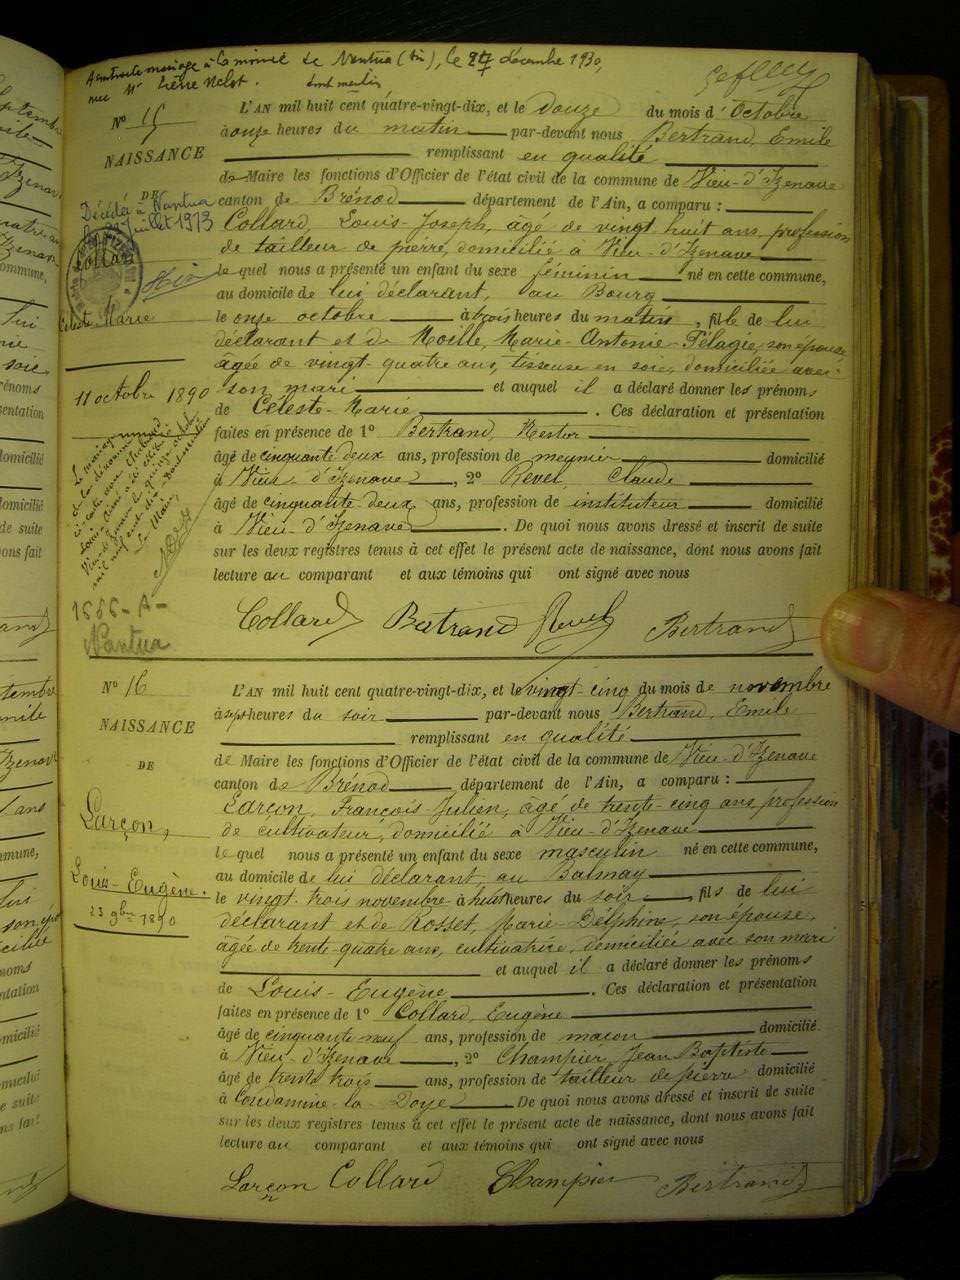 mariage à la mairie de Nantua (Ain), le 27 décembre 1930,
avec Mr
dont mention
L'AN mil huit cent quatre-vingt-dix, et le douze du mois d'Octobre
N° 15
à onze heures du matin par-devant nous Bertrand, Emile
NAISSANCE
remplissant en qualité
de Maire les fonctions d'Officier de l'état civil de la commune de Vieu-d'Izenave
DE
canton de Brénod département de l'Ain, a comparu :
Décédée à Nantua
juillet 1973
Collard Louis-Joseph, âgé de vingt huit ans, profession
de tailleur de pierre, domicilié à Vieu-d'Izenave
Collard
le quel nous a présenté un enfant du sexe féminin né en cette commune,
au domicile de lui déclarant, au Bourg
Céleste Marie
le onze octobre à trois heures du matin, fille de lui
déclarant et de Moille, Marie-Antonie-Pélagie, son épouse,
âgée de vingt-quatre ans, tisseuse en soie, domiciliée avec
11 octobre 1890
son mari et auquel il a déclaré donner les prénoms
de Céleste-Marie. Ces déclaration et présentation
faites en présence de 1° Bertrand, Nestor
âgé de cinquante deux ans, profession de meunier domicilié
à Vieu-d'Izenave, 2° Revel Claude
âgé de cinquante deux ans, profession de instituteur domicilié
à Vieu-d'Izenave. De quoi nous avons dressé et inscrit de suite
sur les deux registres tenus à cet effet le présent acte de naissance, dont nous avons fait
lecture au comparant et aux témoins qui ont signé avec nous
le Maire,
1656-A-
Nantua
Collard Bertrand Revel Bertrand
N° 16
L'AN mil huit cent quatre-vingt-dix, et le vingt-cinq du mois de novembre
à sept heures du soir par-devant nous Bertrand, Emile
NAISSANCE
remplissant en qualité
de Maire les fonctions d'Officier de l'état civil de la commune de Vieu-d'Izenave
DE
canton de Brénod département de l'Ain, a comparu :
Larçon, François-Julien, âgé de trente-cinq ans, profession
Larçon,
de cultivateur, domicilié à Vieu-d'Izenave
le quel nous a présenté un enfant du sexe masculin né en cette commune,
au domicile de lui déclarant au Balmay
Louis-Eugène.
le vingt-trois novembre à huit heures du soir, fils de lui
23 9bre 1890
déclarant et de Rosset, Marie-Delphine, son épouse,
âgée de trente-quatre ans, cultivatrice, domiciliée avec son mari
et auquel il a déclaré donner les prénoms
de Louis-Eugène. Ces déclaration et présentation
faites en présence de 1° Collard, Eugène
âgé de cinquante neuf ans, profession de maçon domicilié
à Vieu-d'Izenave, 2° Champier, Jean Baptiste
âgé de trente trois ans, profession de tailleur de pierre domicilié
à Condamine-la-Doye. De quoi nous avons dressé et inscrit de suite
sur les deux registres tenus à cet effet le présent acte de naissance, dont nous avons fait
lecture au comparant et aux témoins qui ont signé avec nous
Larçon Collard Champier Bertrand